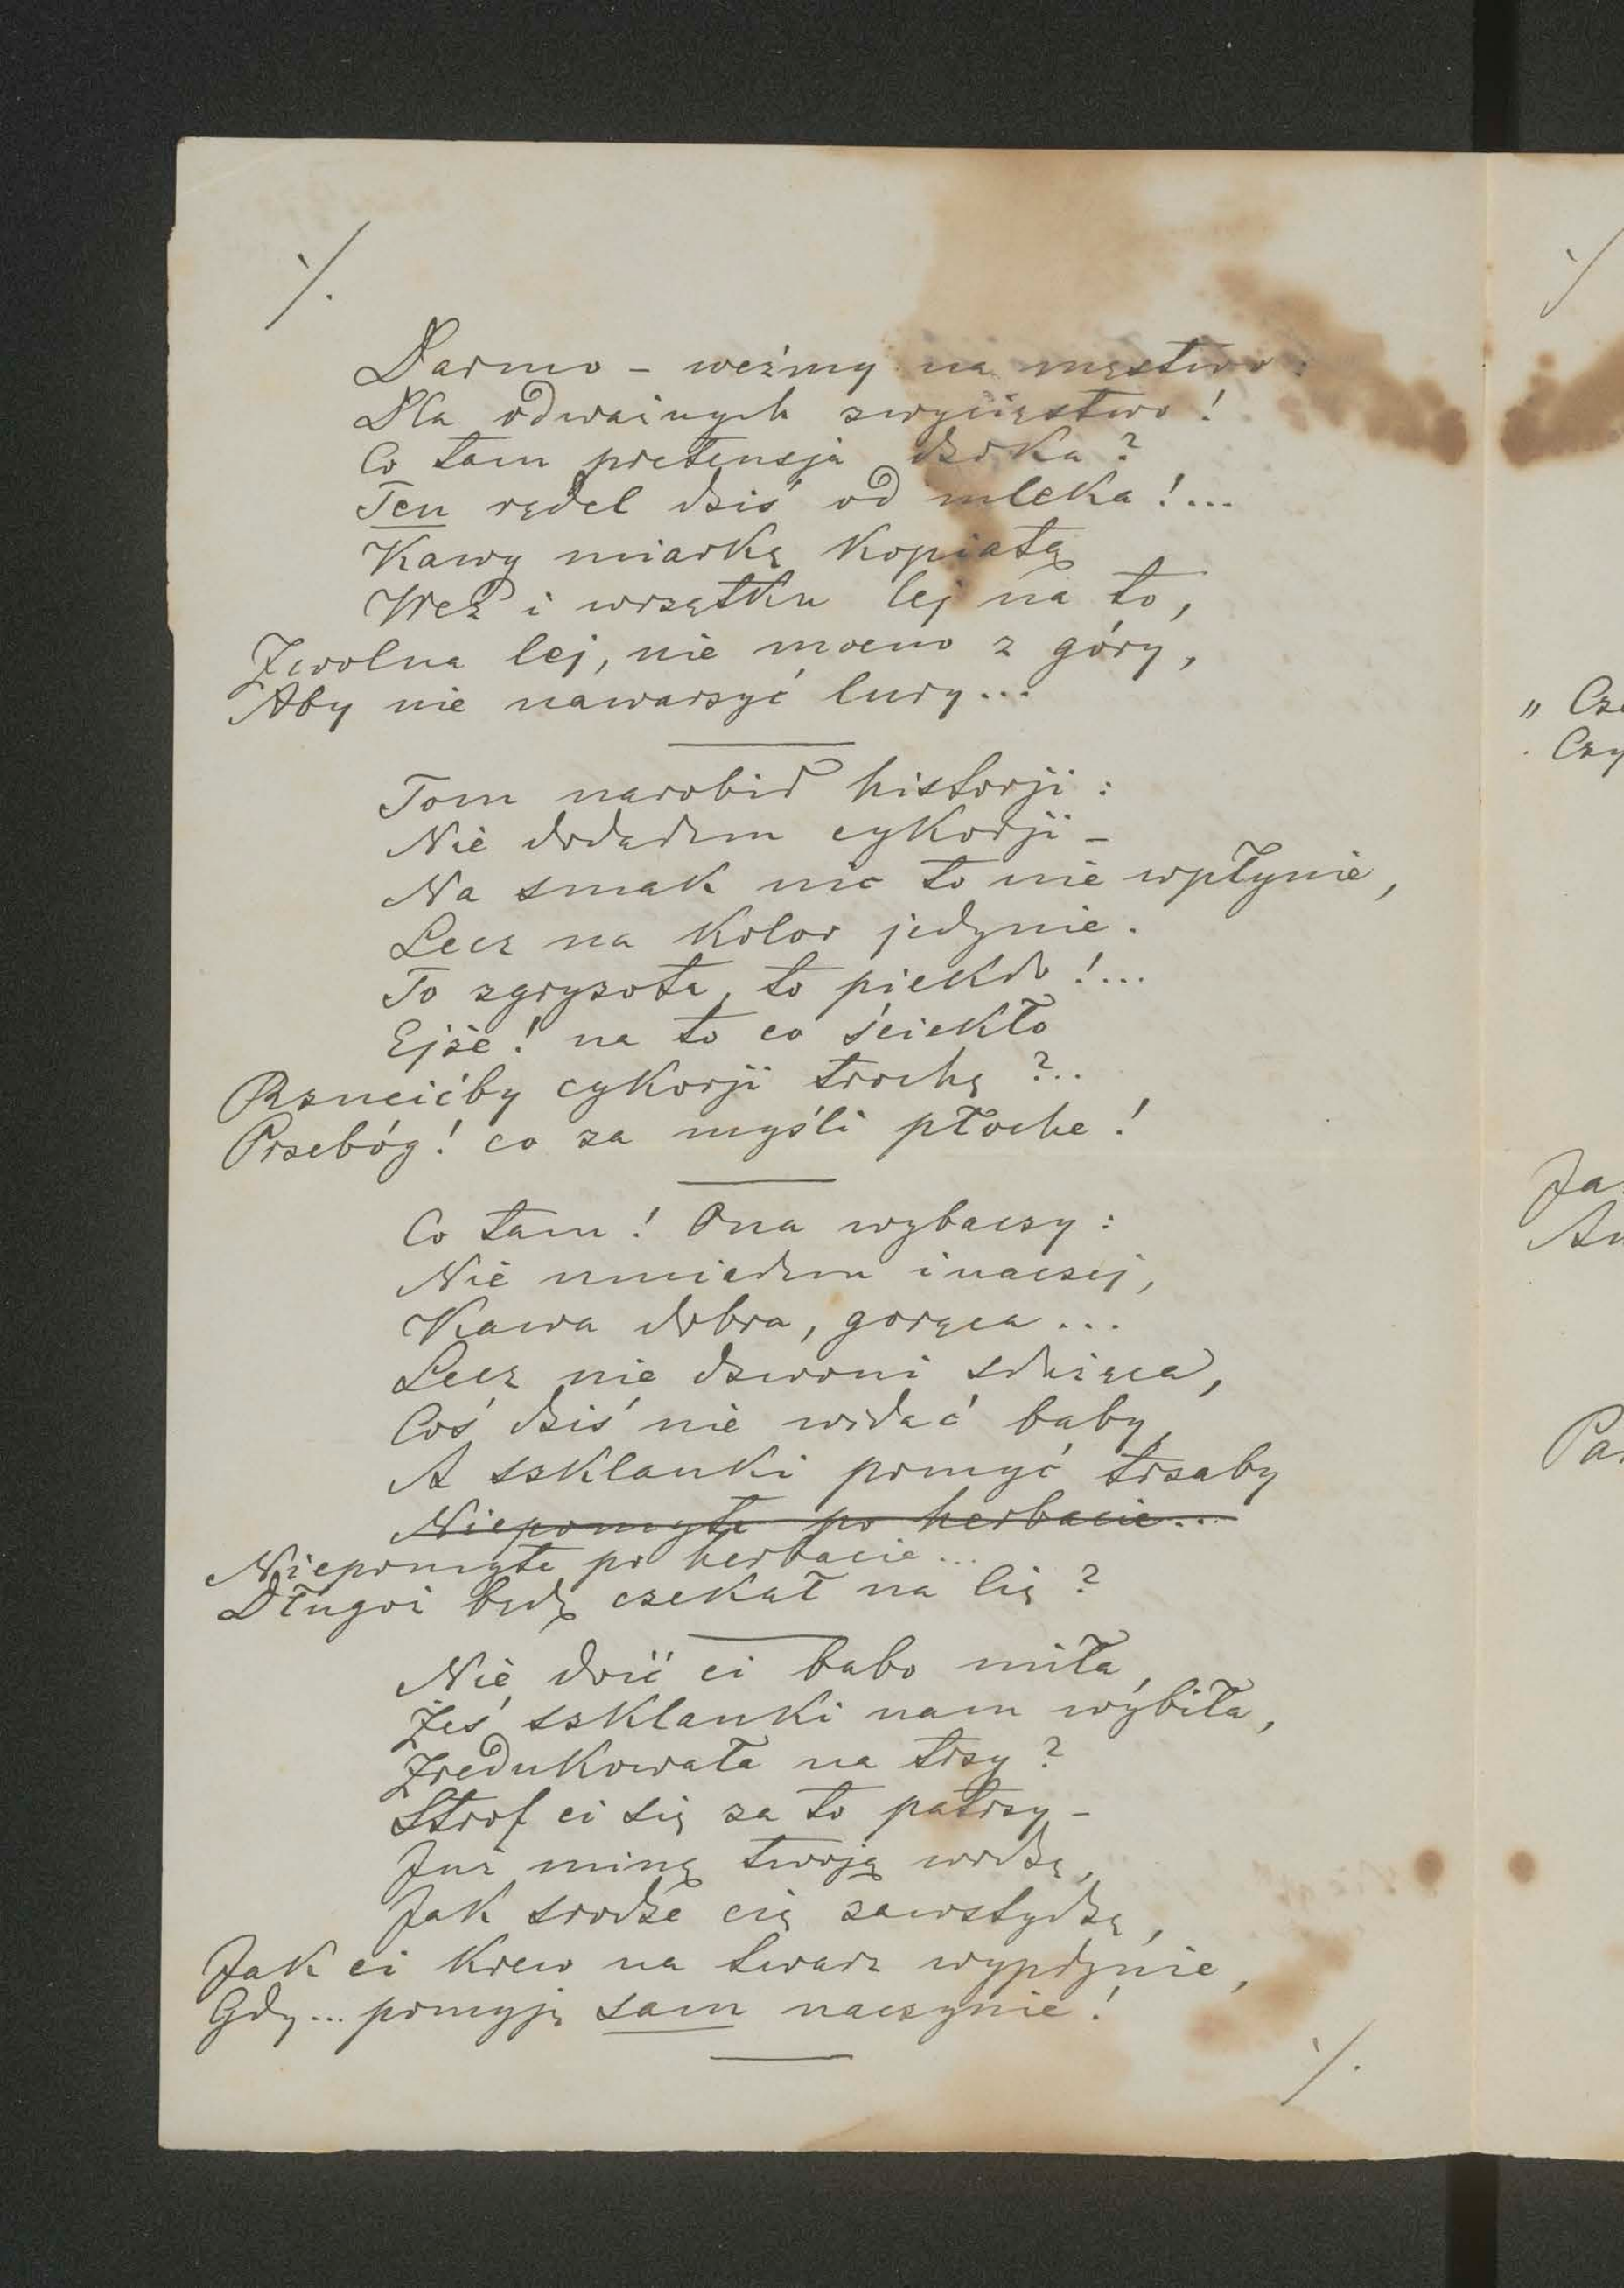 ./.
Darmo – weźmy na męstwo:
Dla odważnych zwycięstwo!
Co tam pretensja dzika?
Ten rądel dziś od mleka!...
Kawy miarkę kopiatą
Weź i wrzątku lej na to,
Zwolna lej, nie mocno z góry,
Aby nie nawarzyć lury...
Tom narobił historji:
Nie dodałem cykorji –
Na smak nic to nie wpłynie,
Lecz na kolor jedynie.
To zgryzota, to piekło!...
Ejże! na to co ściekło
Rzucićby cykorji trochę?..
Przebóg! co za myśli płoche!
Co tam! Ona wybaczy:
Nie umiałem inaczej,
Kawa dobra, gorąca...
Lecz nie dzwoni służąca,
Coś dziś nie widać baby,
A szklanki pomyć trzaby
Niepomyte po herbacie...
Niepomyte po herbacie...
Długoż będę czekał na cię?
Nie dość ci babo miła,
Żeś szklanki nam wybiła,
Zredukowała na trzy?
Strof ci się za to patrzy –
Już minę twoją widzę,
Jak srodze cię zawstydzę,
Jak ci krew na twarz wypłynie,
Gdy... pomyję sam naczynie!
./.